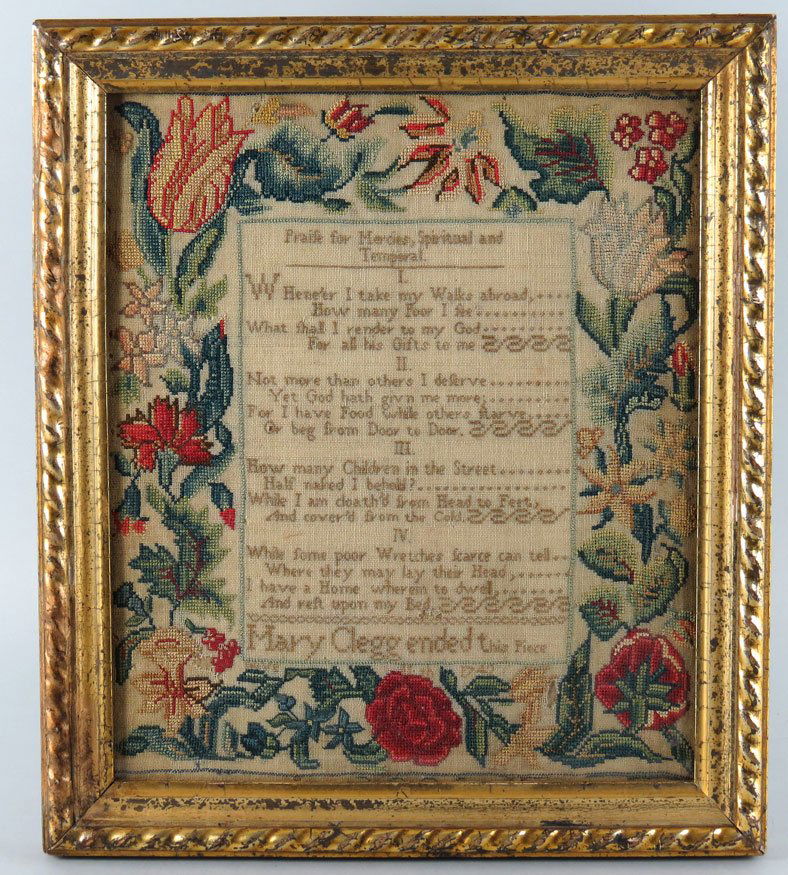 Praiſe for Mercies, Spiritual and
Temporal.
I.
WHene'er I take my Walks abroad,
How many Poor I ſee
What ſhall I render to my God
For all his Gifts to me
II.
Not more than others I deſerve
Yet God hath givn me more;
For I have Food while others ſtarve
Or beg from Door to Door.
III.
How many Children in the Street
Half naked I behold?
While I am cloath'd from Head to Feet,
And cover'd from the Cold.
IV.
While ſome poor Wretches ſcarce can tell
Where they may lay their Head,
I have a Home wherein to dwell,
And reſt upon my Bed
Mary Clegg ended this Piece